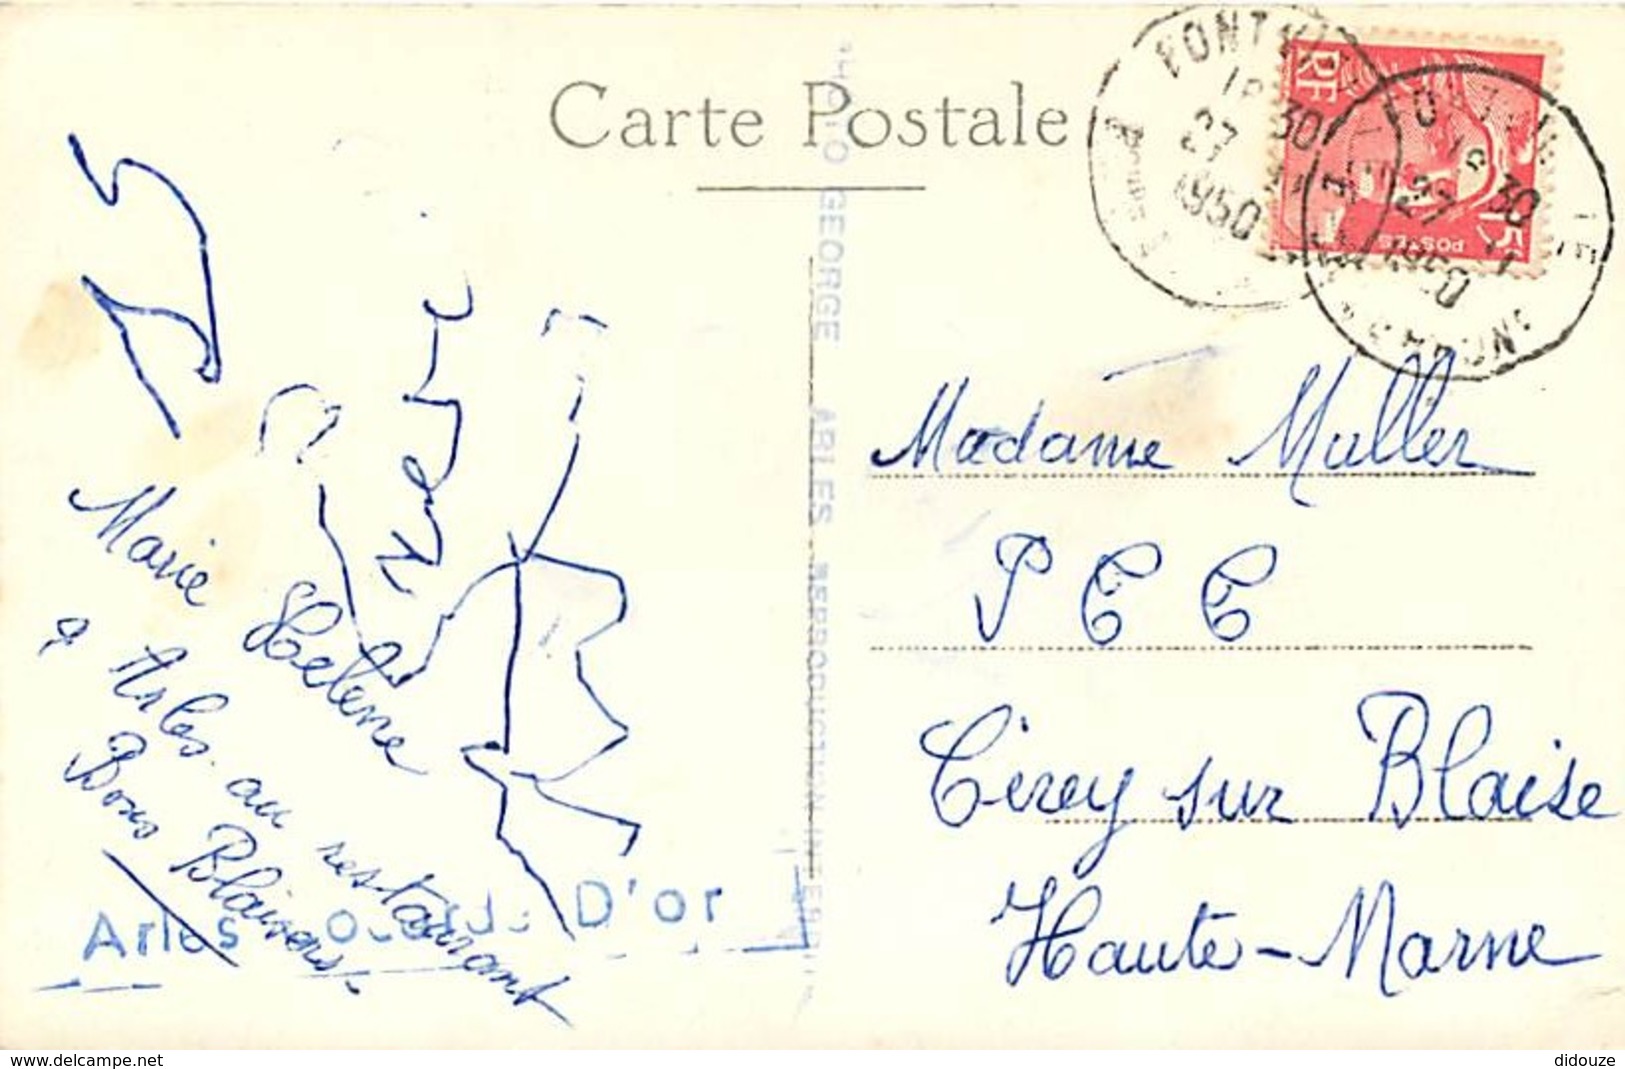 Carte Postale
PHOTO GEORGE ARLES REPRODUCTION INTERDITE
RF
POSTES
15F
18 30
27
1950
18 30
27
1950
Marie Helene
à Arles au restaurant
Bons Blaisers
Arles D'or
Madame Muller
P C C
Cirey sur Blaise
Haute-Marne
www.delcampe.net
didouze